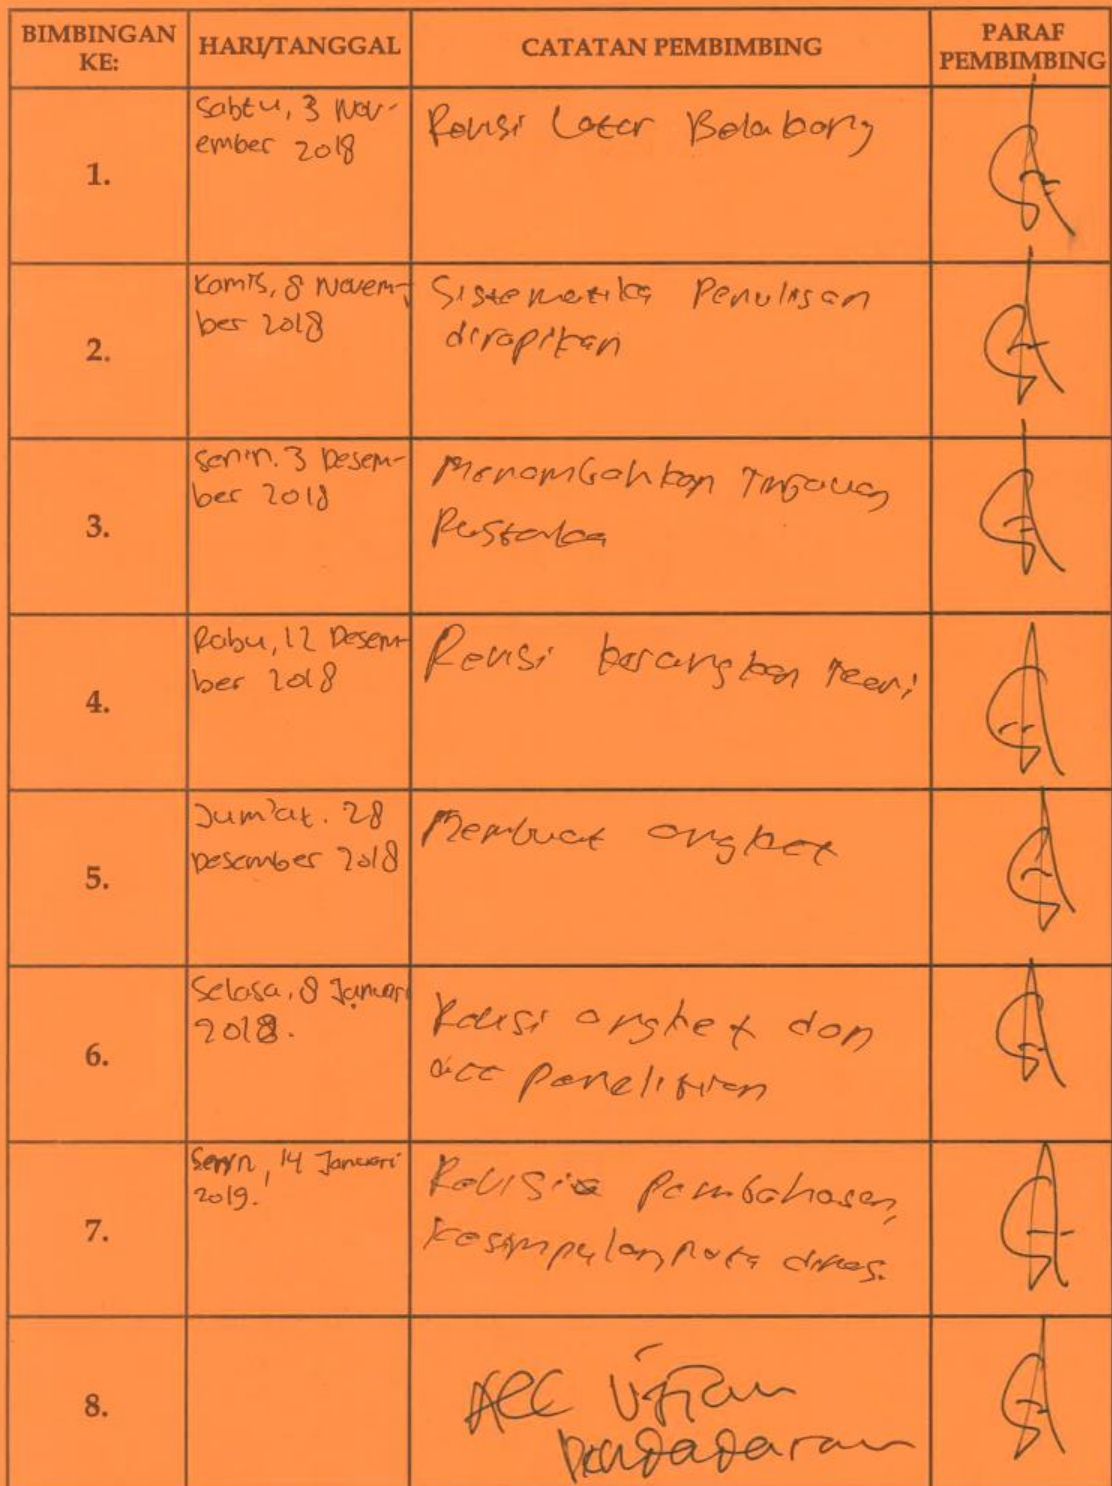 BIMBINGAN KE: HARI/TANGGAL CATATAN PEMBIMBING PARAF PEMBIMBING
1. Sabtu, 3 Nov-
ember 2018
Revisi Latar Belakang
2. Kamis, 8 Novem-
ber 2018
Sistematika Penulisan
dirapikan
3. Senin. 3 Desem-
ber 2018
Menambahkan Tinjauan
Pustaka
4. Rabu, 12 Desem-
ber 2018
Revisi kerangka teori
5. Jum'at. 28
Desember 2018
Membuat angket
6. Selasa, 8 Januari
2018.
Revisi angket dan
acc penelitian
7. Senin, 14 Januari
2019.
Revisi pembahasan,
kesimpulan, nota dinas.
8. ACC Ujian
pendadaran